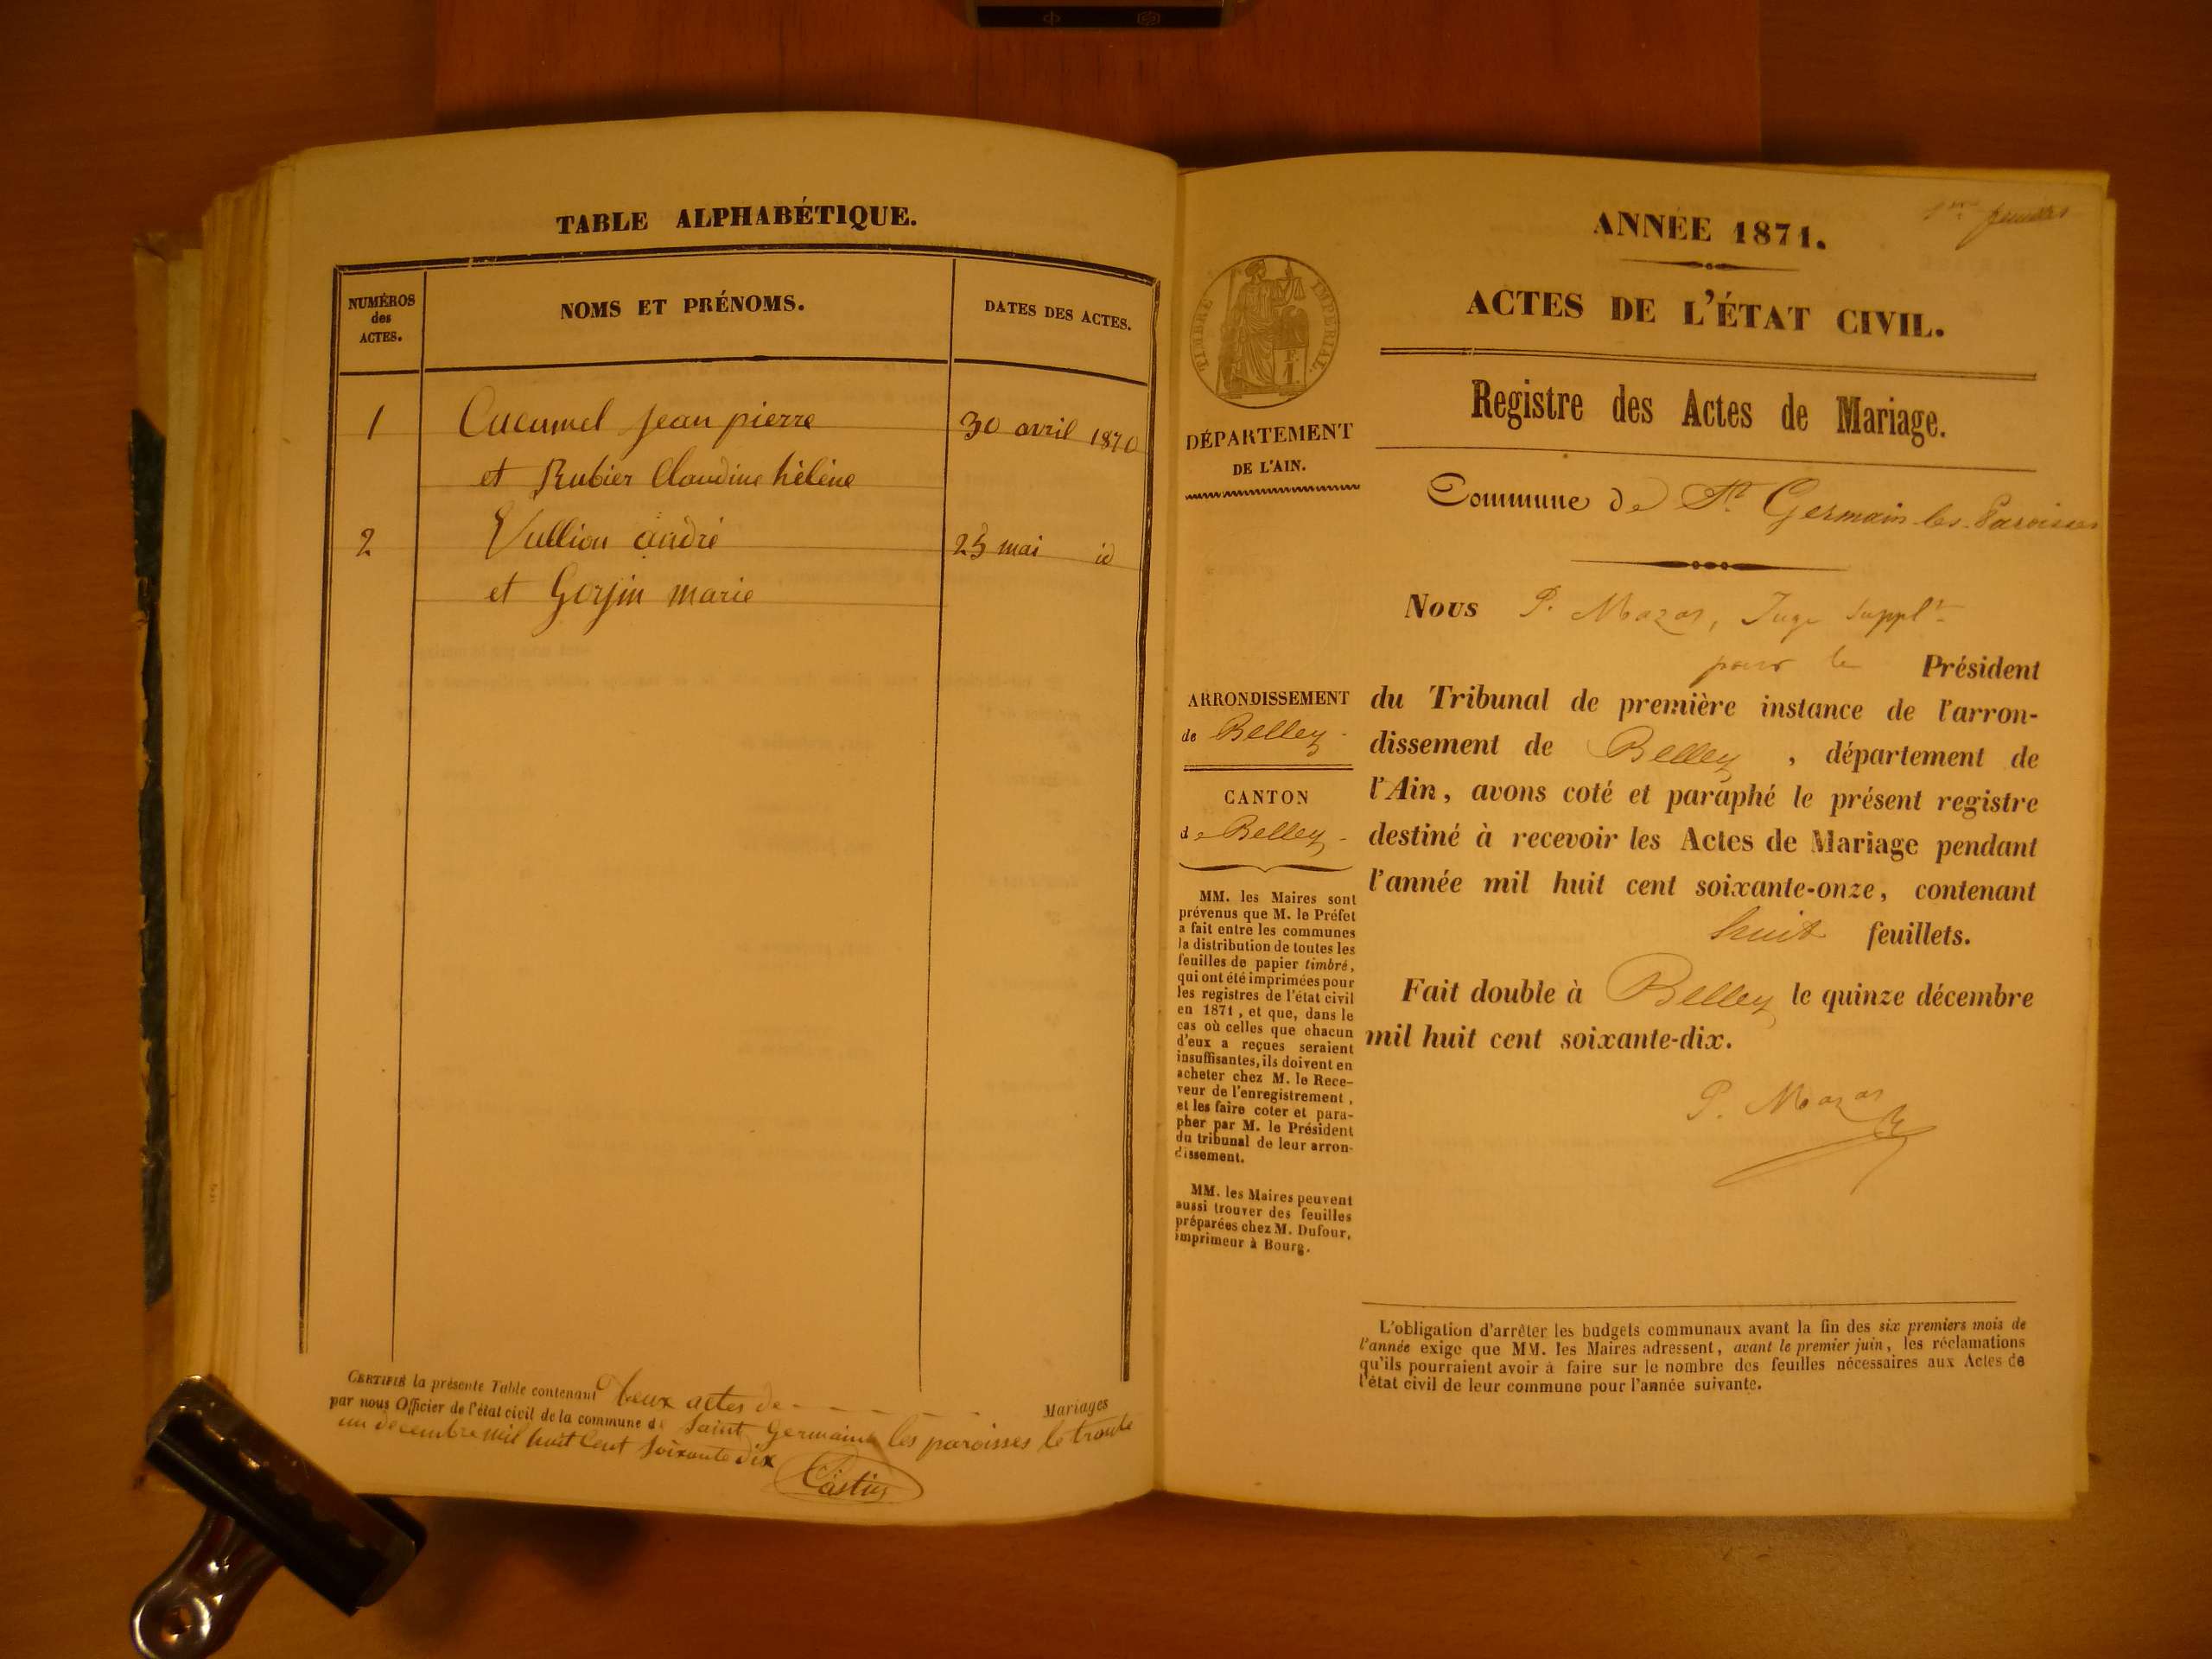 TABLE ALPHABÉTIQUE.
NUMÉROS
des
ACTES.
NOMS ET PRÉNOMS.
DATES DES ACTES.
1 Cucumel Jean pierre 30 avril 1870
et Rubier Claudine hélène
2 Vullion andré 25 mai id
et Gorjin marie
CERTIFIÉ la présente Table contenant Deux actes de Mariages
par nous Officier de l'état civil de la commune de Saint Germain les paroisses le trente
un décembre mil huit Cent soixante dix
ANNÉE 1871.
ACTES DE L'ÉTAT CIVIL.
TIMBRE IMPÉRIAL.
1 F.
DÉPARTEMENT
DE L'AIN.
Registre des Actes de Mariage.
Commune de St Germain-les-Paroisses
Nous P. , Juge Supplt
pour le Président
ARRONDISSEMENT
de Belley
CANTON
de Belley
du Tribunal de première instance de l'arron-
dissement de Belley, département de
l'Ain, avons coté et paraphé le présent registre
destiné à recevoir les Actes de Mariage pendant
l'année mil huit cent soixante-onze, contenant
huit feuillets.
Fait double à Belley le quinze décembre
mil huit cent soixante-dix.
MM. les Maires sont
prévenus que M. le Préfet
a fait entre les communes
la distribution de toutes les
feuilles de papier timbré,
qui ont été imprimées pour
les registres de l'état civil
en 1871, et que, dans le
cas où celles que chacun
d'eux a reçues seraient
insuffisantes, ils doivent en
acheter chez M. le Rece-
veur de l'enregistrement,
et les faire coter et para-
pher par M. le Président
du tribunal de leur arron-
dissement.
MM. les Maires peuvent
aussi trouver des feuilles
préparées chez M. Dufour,
imprimeur à Bourg.
L'obligation d'arrêter les budgets communaux avant la fin des six premiers mois de
l'année exige que MM. les Maires adressent, avant le premier juin, les réclamations
qu'ils pourraient avoir à faire sur le nombre des feuilles nécessaires aux Actes de
l'état civil de leur commune pour l'année suivante.